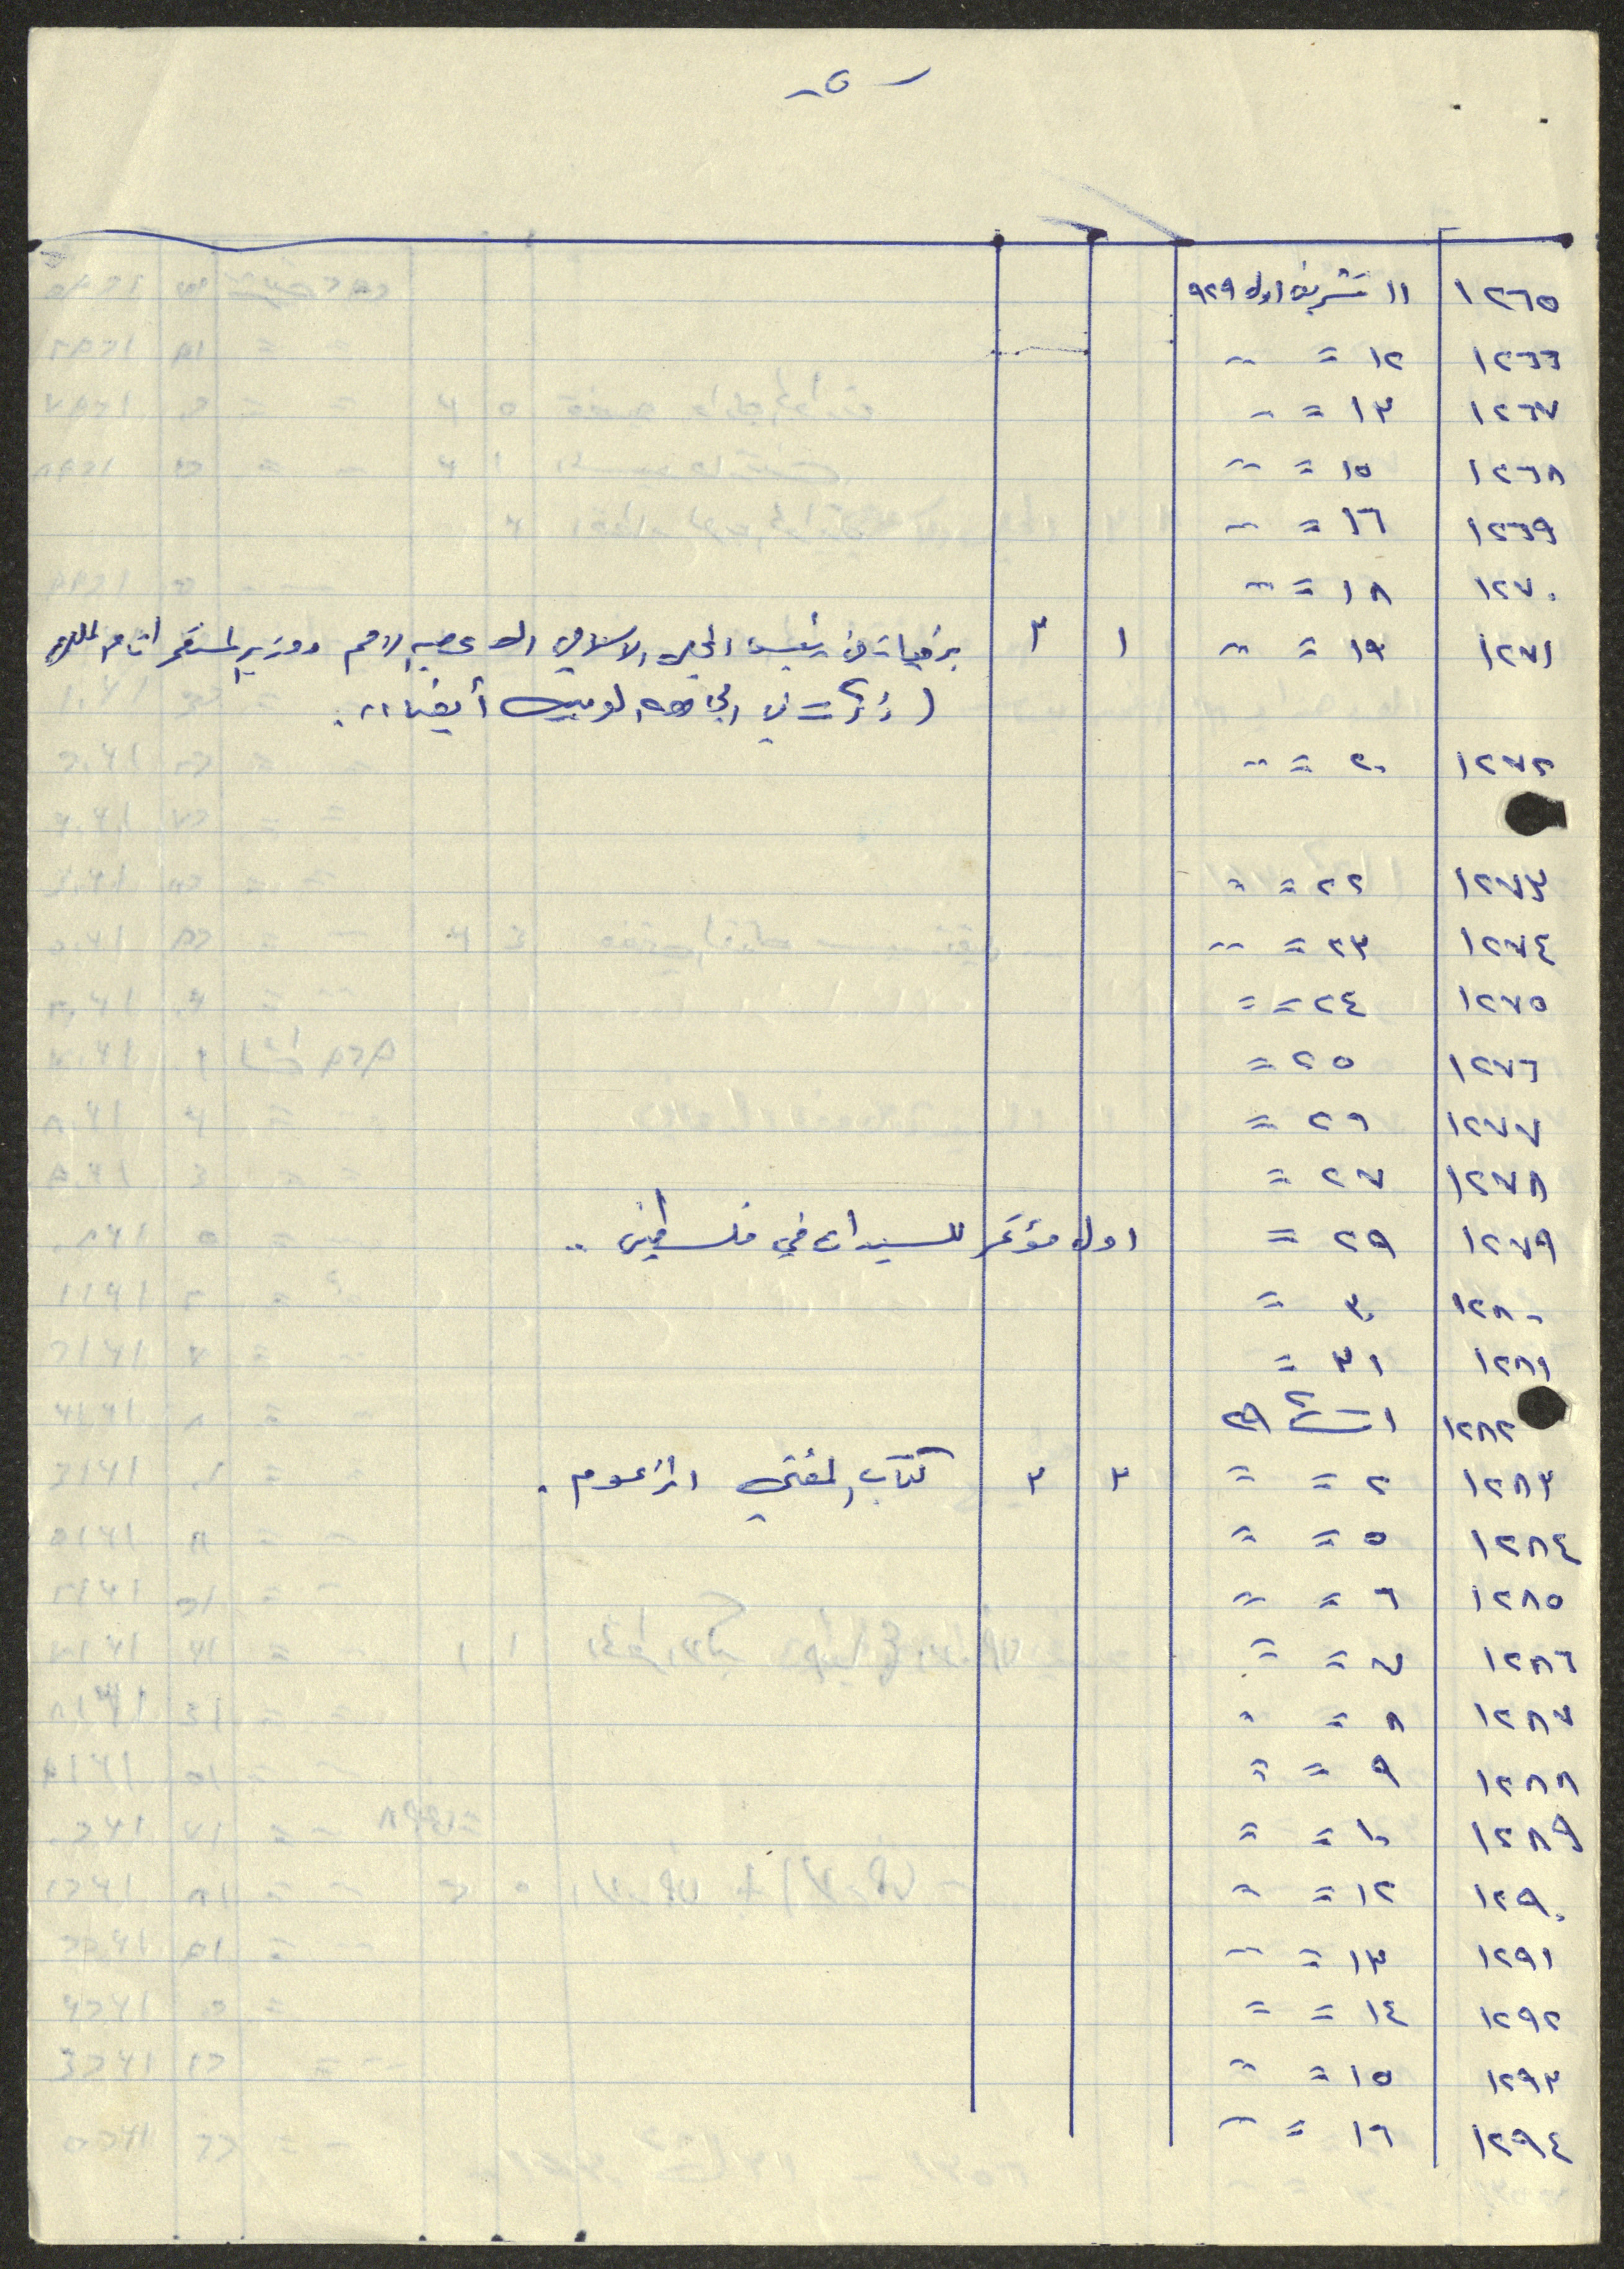 - ٥ -
١٢٦٥ ١١ تشرين اول ٩٢٩
١٢٦٦ ١٢ = =
١٢٦٧ ١٣ = =
١٢٦٨ ١٥ = =
١٢٦٩ ١٦ = =
١٢٧٠ ١٨ = =
١٢٧١ ١٩ = = ١ ٣ برقيات من رئيس المجلس الاسلامي الى عصبة الامم ووزير المستعمرات
( في الجامعة العربية أيضا ..
١٢٧٢ ٢٠ = =
١٢٧٣ ٢٢ = =
١٢٧٤ ٢٣ = =
١٢٧٥ ٢٤ = =
١٢٧٦ ٢٥ =
١٢٧٧ ٢٦ =
١٢٧٨ ٢٧ =
١٢٧٩ ٢٩ = اول مؤتمر للسيدات في فلسطين ..
١٢٨٠ ٣٠ =
١٢٨١ ٣١ =
١٢٨٢ ١ ت٢ ٢٩
١٢٨٣ ٢ = = ٣ ٣ كتاب المفتي المزعوم .
١٢٨٤ ٥ = =
١٢٨٥ ٦ = =
١٢٨٦ ٧ = =
١٢٨٧ ٨ = =
١٢٨٨ ٩ = =
١٢٨٩ ١٠ = =
١٢٩٠ ١٢ = =
١٢٩١ ١٣ = =
١٢٩٢ ١٤ = =
١٢٩٣ ١٥ = =
١٢٩٤ ١٦ = =